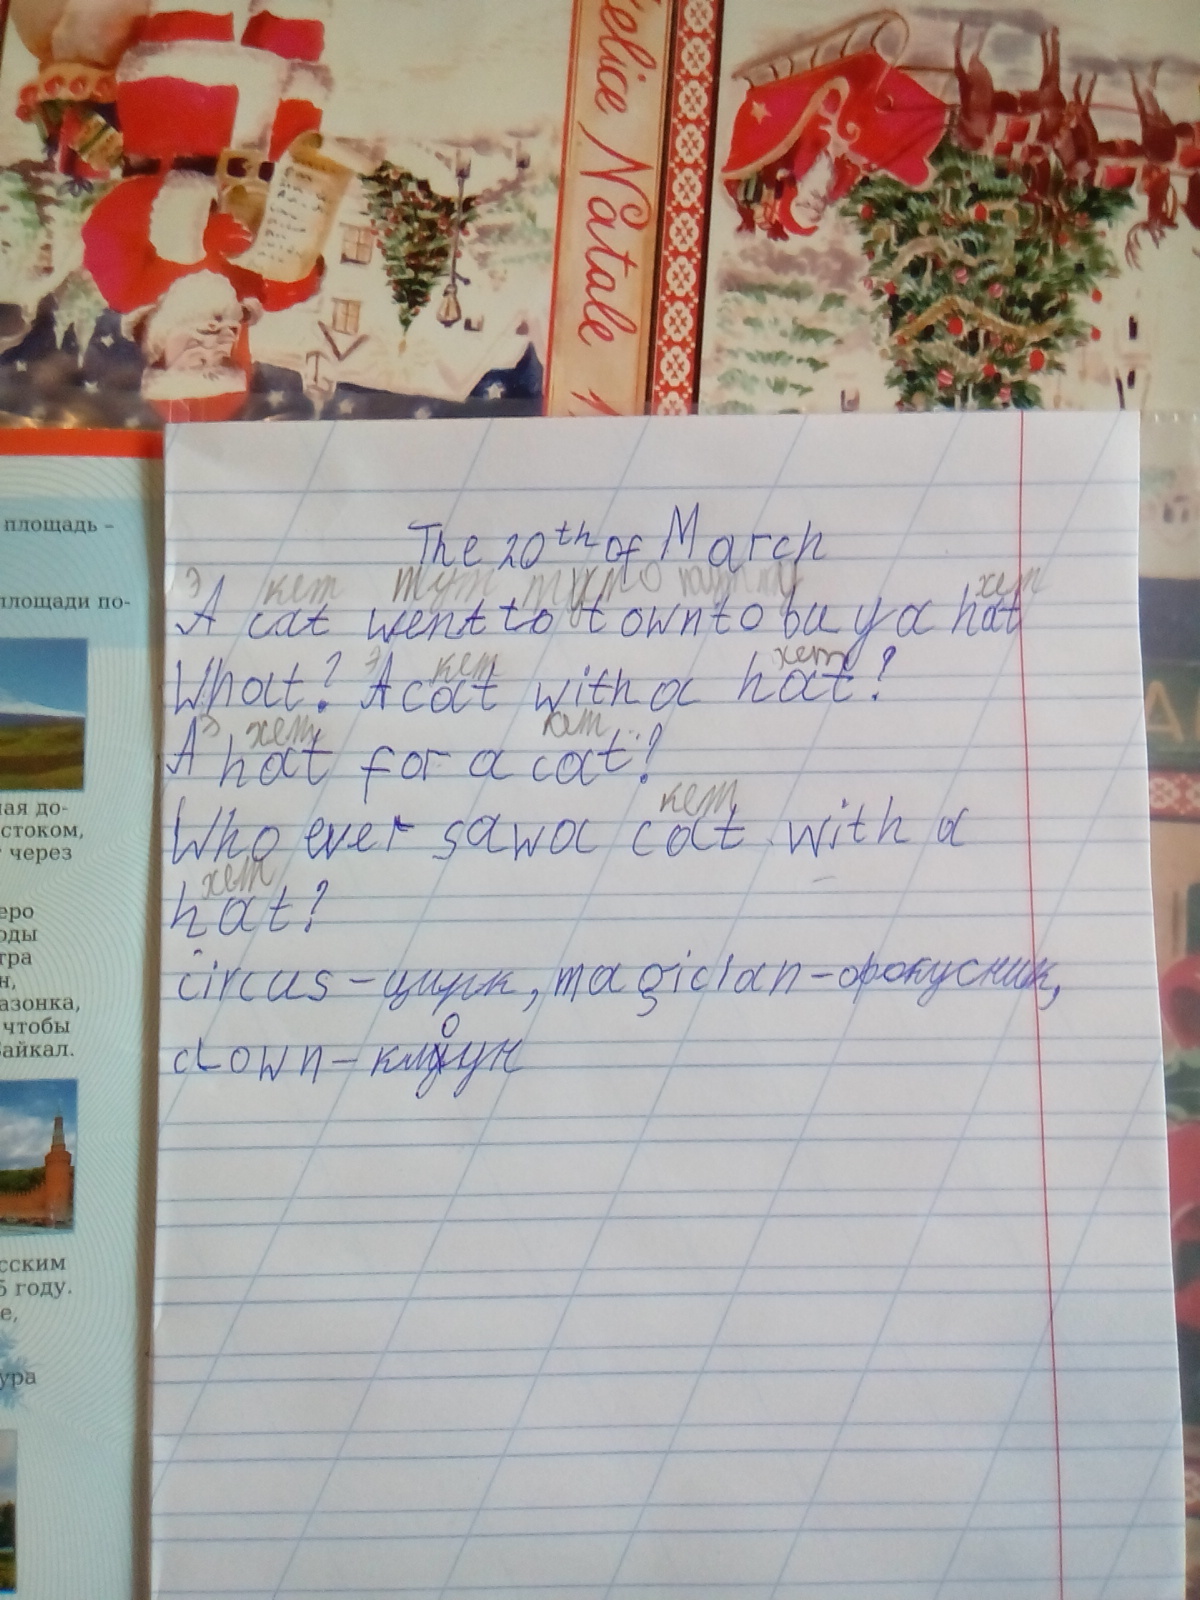 Felice Natale
площадь –
площади по-
The 20th of March
э кет хет
A cat went to town to buy a hat
э кет хет
What? A cat with a hat?
э хет кет
A hat for a cat?!
кет
Who ever saw a cat with a
хет
hat?
circus – цирк, magician – фокусник,
clown – клоун
ная до-
стоком,
через
еро
оды
тра
н,
азонка,
чтобы
Байкал.
сским
5 году.
е,
ура